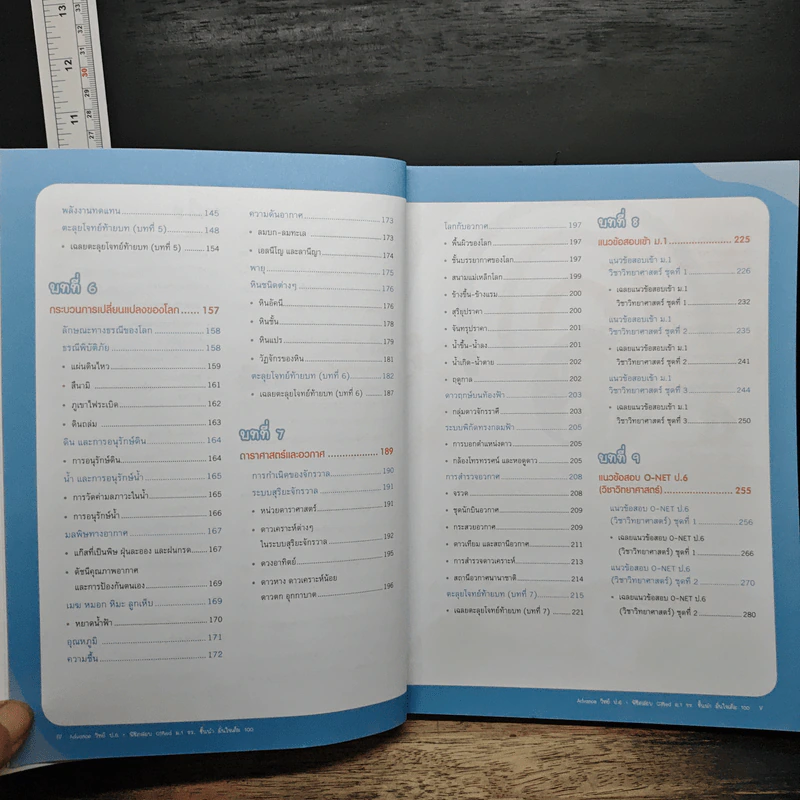 พลังงานทดแทน 145
ตะลุยโจทย์ท้ายบท (บทที่ 5) 148
• เฉลยตะลุยโจทย์ท้ายบท (บทที่ 5) 154
บทที่ 6
กระบวนการเปลี่ยนแปลงของโลก 157
ลักษณะทางธรณีของโลก 158
ธรณีพิบัติภัย 158
• แผ่นดินไหว 159
• สึนามิ 161
• ภูเขาไฟระเบิด 162
• ดินถล่ม 163
ดิน และการอนุรักษ์ดิน 164
• การอนุรักษ์ดิน 164
น้ำ และการอนุรักษ์น้ำ 165
• การวัดค่ามลภาวะในน้ำ 165
• การอนุรักษ์น้ำ 166
มลพิษทางอากาศ 167
• แก๊สที่เป็นพิษ ฝุ่นละออง และฝนกรด 167
• ดัชนีคุณภาพอากาศ
และการป้องกันตนเอง 169
เมฆ หมอก หิมะ ลูกเห็บ 169
• หยาดน้ำฟ้า 170
อุณหภูมิ 171
ความชื้น 172
ความดันอากาศ 173
• ลมบก-ลมทะเล 173
• เอลนีโญ และลานีญา 174
พายุ 175
หินชนิดต่างๆ 176
• หินอัคนี 176
• หินชั้น 178
• หินแปร 179
• วัฏจักรของหิน 181
ตะลุยโจทย์ท้ายบท (บทที่ 6) 182
• เฉลยตะลุยโจทย์ท้ายบท (บทที่ 6) 187
บทที่ 7
ดาราศาสตร์และอวกาศ 189
การกำเนิดของจักรวาล 190
ระบบสุริยะจักรวาล 191
• หน่วยดาราศาสตร์ 191
• ดาวเคราะห์ต่างๆ
ในระบบสุริยะจักรวาล 192
• ดวงอาทิตย์ 195
• ดาวหาง ดาวเคราะห์น้อย
ดาวตก อุกกาบาต 196
IV Advance วิทย์ ป.6 • พิชิตสอบ Gifted ม.1 รร. ชั้นนำ มั่นใจเต็ม 100
โลกกับอวกาศ 197
• พื้นผิวของโลก 197
• ชั้นบรรยากาศของโลก 197
• สนามแม่เหล็กโลก 199
• ข้างขึ้น-ข้างแรม 200
• สุริยุปราคา 200
• จันทรุปราคา 201
• น้ำขึ้น-น้ำลง 201
• น้ำเกิด-น้ำตาย 202
• ฤดูกาล 202
ดาวฤกษ์บนท้องฟ้า 203
• กลุ่มดาวจักรราศี 203
ระบบพิกัดทรงกลมฟ้า 205
• การบอกตำแหน่งดาว 205
• กล้องโทรทรรศน์ และหอดูดาว 205
การสำรวจอวกาศ 208
• จรวด 208
• ชุดนักบินอวกาศ 209
• กระสวยอวกาศ 209
• ดาวเทียม และสถานีอวกาศ 211
• การสำรวจดาวเคราะห์ 213
• สถานีอวกาศนานาชาติ 214
ตะลุยโจทย์ท้ายบท (บทที่ 7) 215
• เฉลยตะลุยโจทย์ท้ายบท (บทที่ 7) 221
บทที่ 8
แนวข้อสอบเข้า ม.1 225
แนวข้อสอบเข้า ม.1
วิชาวิทยาศาสตร์ ชุดที่ 1 226
• เฉลยแนวข้อสอบเข้า ม.1
วิชาวิทยาศาสตร์ ชุดที่ 1 232
แนวข้อสอบเข้า ม.1
วิชาวิทยาศาสตร์ ชุดที่ 2 235
• เฉลยแนวข้อสอบเข้า ม.1
วิชาวิทยาศาสตร์ ชุดที่ 2 241
แนวข้อสอบเข้า ม.1
วิชาวิทยาศาสตร์ ชุดที่ 3 244
• เฉลยแนวข้อสอบเข้า ม.1
วิชาวิทยาศาสตร์ ชุดที่ 3 250
บทที่ 9
แนวข้อสอบ O-NET ป.6
(วิชาวิทยาศาสตร์) 255
แนวข้อสอบ O-NET ป.6
(วิชาวิทยาศาสตร์) ชุดที่ 1 256
• เฉลยแนวข้อสอบ O-NET ป.6
(วิชาวิทยาศาสตร์) ชุดที่ 1 266
แนวข้อสอบ O-NET ป.6
(วิชาวิทยาศาสตร์) ชุดที่ 2 270
• เฉลยแนวข้อสอบ O-NET ป.6
(วิชาวิทยาศาสตร์) ชุดที่ 2 280
Advance วิทย์ ป.6 • พิชิตสอบ Gifted ม.1 รร. ชั้นนำ มั่นใจเต็ม 100 V
13
12
30
11